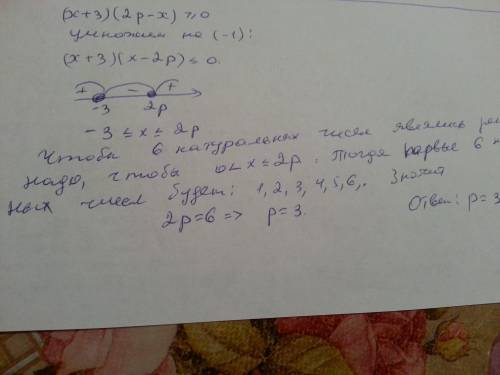 (x+3)(2p-x) ≥ 0
умножаем на (-1):
(x+3)(x-2p) ≤ 0.
+ - +
-3 2p
-3 ≤ x ≤ 2p
Чтобы 6 натуральных чисел являлись
надо, чтобы 0 < x ≤ 2p. Тогда первые 6
ных чисел будет: 1, 2, 3, 4, 5, 6,. Значит
2p=6 => p=3.
Ответ: p=3